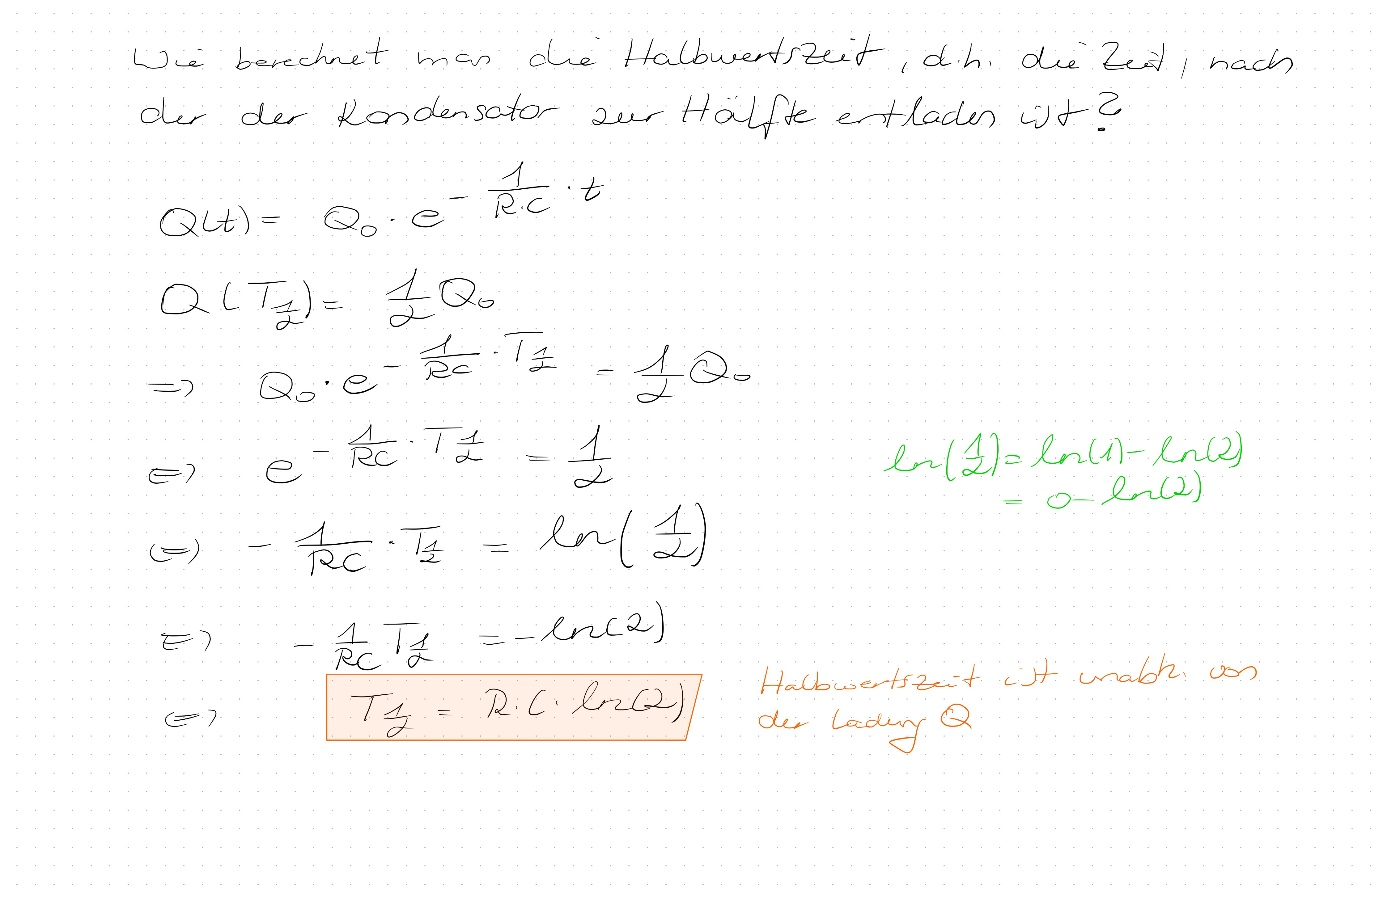 Wie berechnet man die Halbwertszeit, d.h. die Zeit, nach
der der Kondensator zur Hälfte entladen ist?
Q(t) = Q₀ · e^(-1/(R·C) · t)
Q(T_1/2) = 1/2 Q₀
=> Q₀ · e^(-1/(RC) · T_1/2) = 1/2 Q₀
<=> e^(-1/(RC) · T_1/2) = 1/2
ln(1/2) = ln(1) - ln(2)
= 0 - ln(2)
<=> - 1/(RC) · T_1/2 = ln(1/2)
<=> - 1/(RC) T_1/2 = - ln(2)
<=> T_1/2 = R·C· ln(2)
Halbwertszeit ist unabh. von
der Ladung Q